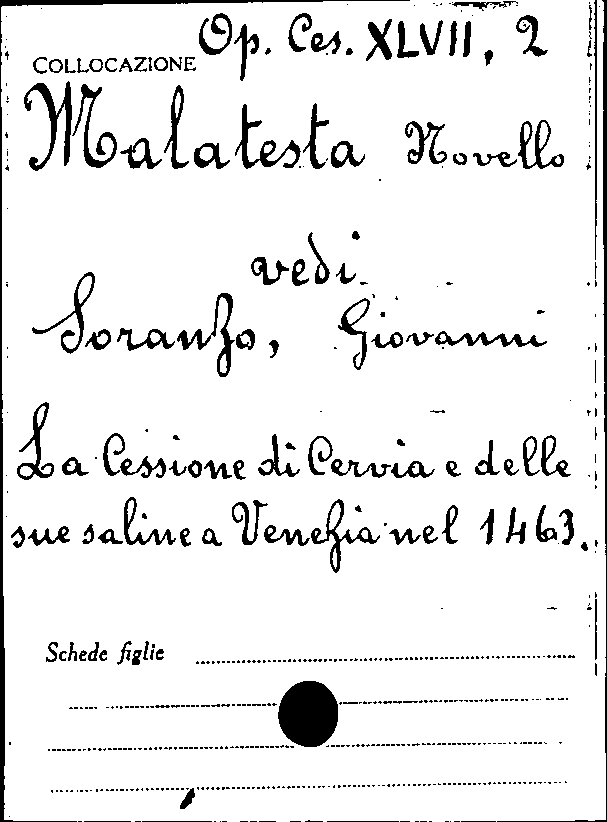 COLLOCAZIONE Op. Ces. XLVII, 2
Malatesta Novello
vedi
Soranzo, Giovanni
La Cessione di Cervia e delle
sue saline a Venezia nel 1463.
Schede figlie